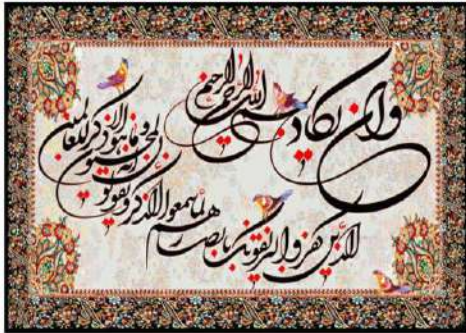 بسم الله الرحمن الرحیم
وان یکاد
الذین کفروا لیزلقونک بابصارهم
لما سمعوا الذکر ویقولون
انه لمجنون
وما هو الا ذکر للعالمین